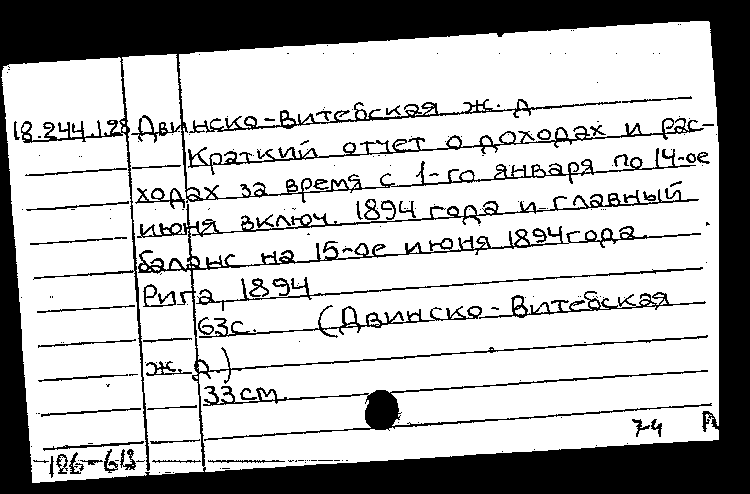 18.244.1.28 Двинско-Витебская ж. д
Краткий отчет о доходах и рас-
ходах за время с 1-го января по 14-ое
июня включ. 1894 года и главный
баланс на 15-ое июня 1894 года.
Рига, 1894
63с. (Двинско-Витебская
ж. д.)
33 см.
74
186-613